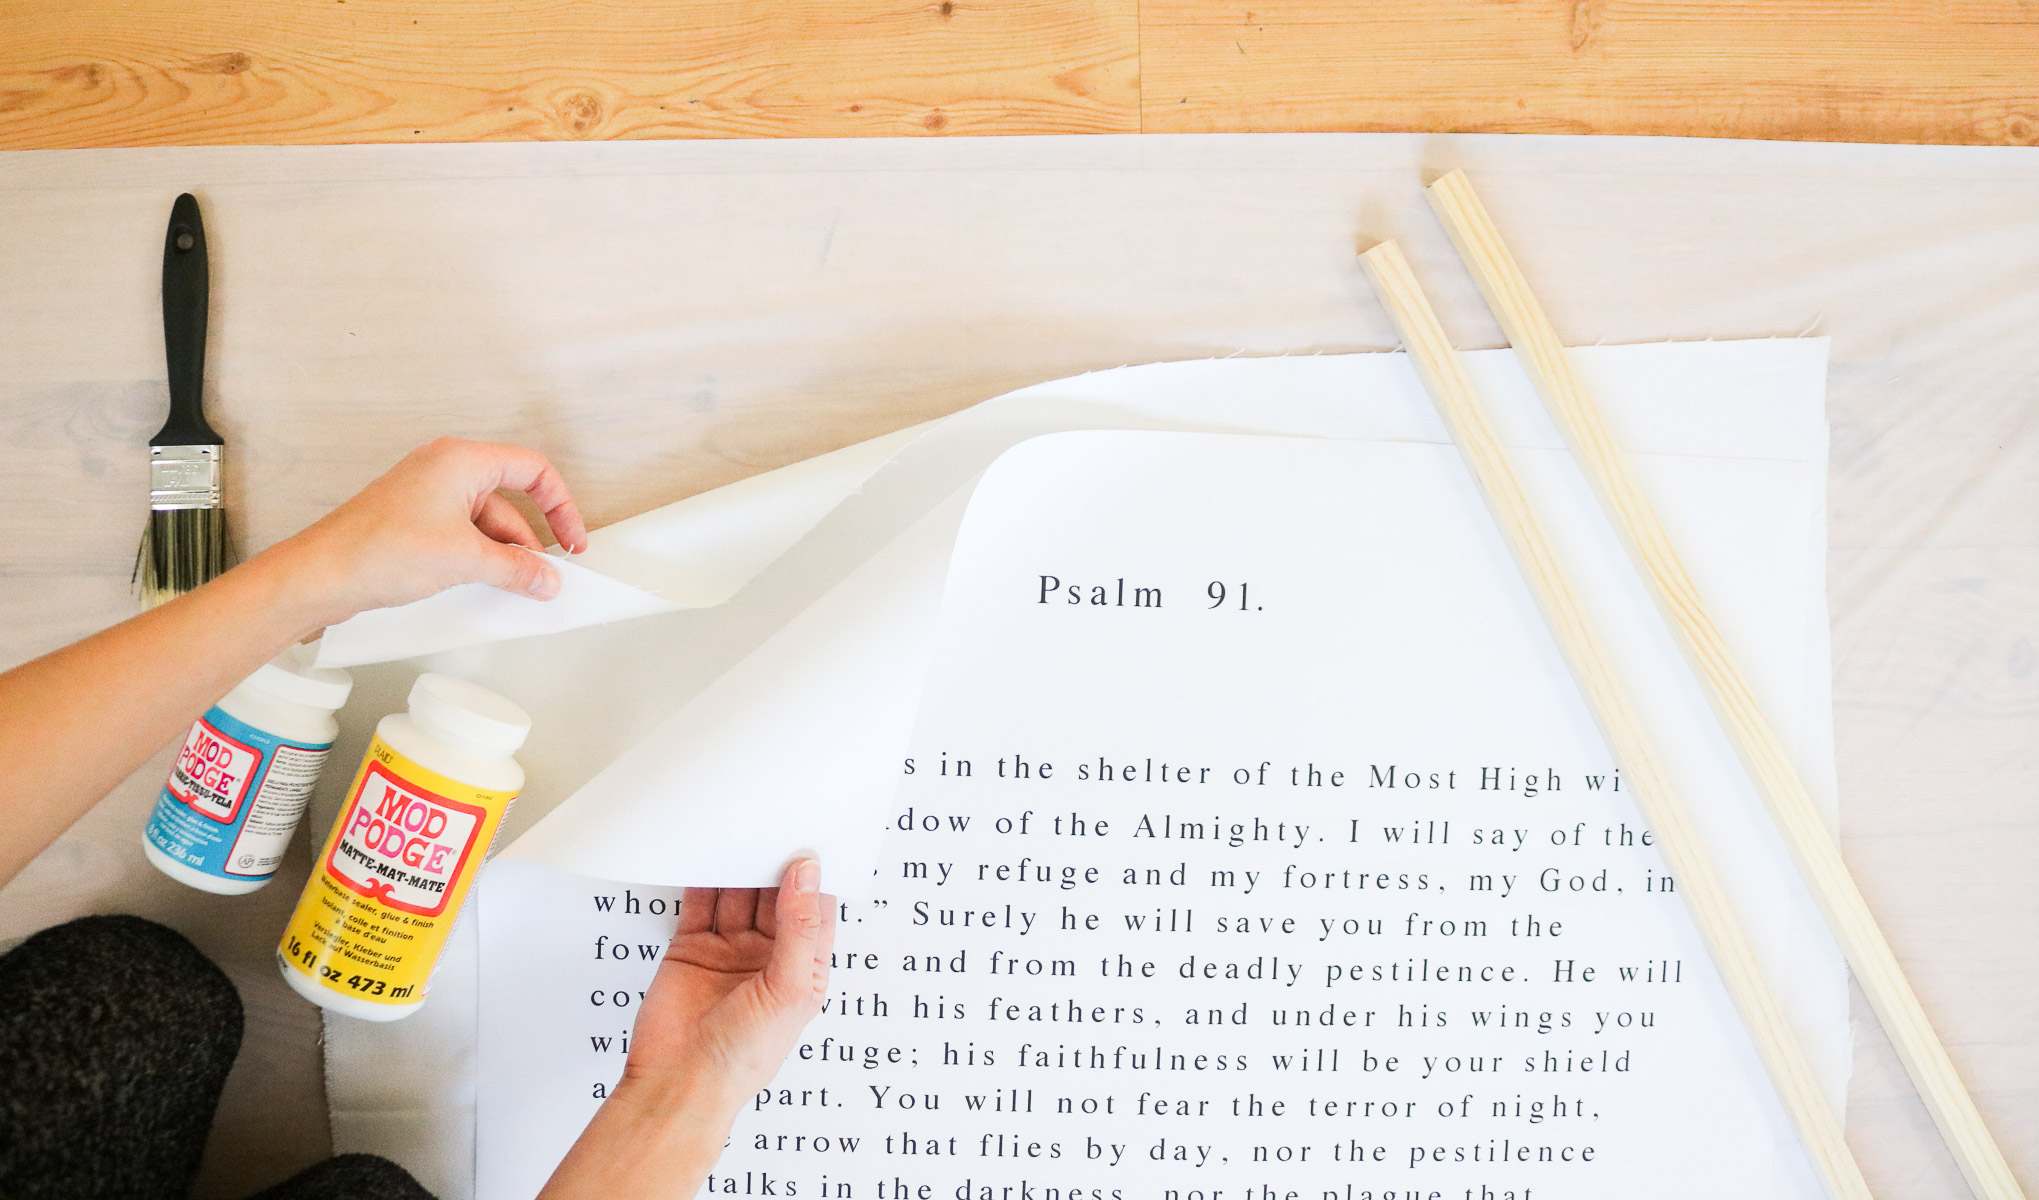 Psalm 91.
in the shelter of the Most High
of the Almighty. I will say of the
my refuge and my fortress, my God, in
t.” Surely he will save you from the
and from the deadly pestilence. He will
with his feathers, and under his wings you
refuge; his faithfulness will be your shield
part. You will not fear the terror of night,
arrow that flies by day, nor the pestilence
talks in the darkness, nor the plague that
MOD
PODGE
8 fl oz 236 ml
PLAID
MOD
PODGE®
MATTE-MAT-MATE
Waterbase sealer, glue & finish
Isolant, colle et finition
à base d'eau
Versiegler, Kleber und
Lack auf Wasserbasis
16 fl oz 473 ml